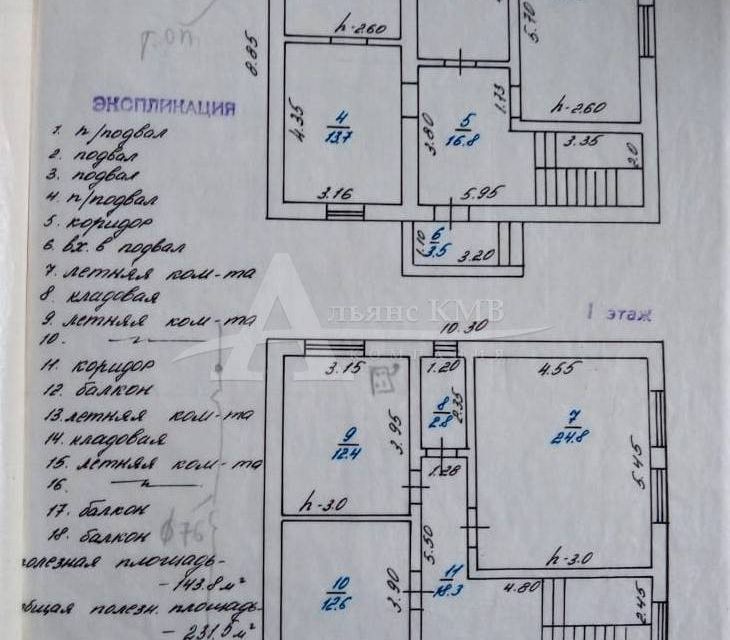 ЭКСПЛИКАЦИЯ
1. п/подвал
2. подвал
3. подвал
4. п/подвал
5. коридор
6. вх. в подвал
7. летняя ком-та
8. кладовая
9. летняя ком-та
10. —"—
11. коридор
12. балкон
13. летняя ком-та
14. кладовая
15. летняя ком-та
16. —"—
17. балкон
18. балкон
олезная площадь-
- 143.8 м²
бщая полезн. площадь-
- 231.0 м²
8.85
h-2.60
5.70
4.35
4
13.7
3.16
3.80
5
16.8
1.73
h-2.60
3.35
2.0
5.95
1.10
6
3.5
3.20
Альянс КМВ
I этаж
10.30
3.15
1.20
4.55
8
2.8
2.35
7
24.8
9
12.4
3.95
5.45
1.28
h-3.0
5.50
h-3.0
10
12.6
3.90
11
18.3
4.80
2.45
ф76